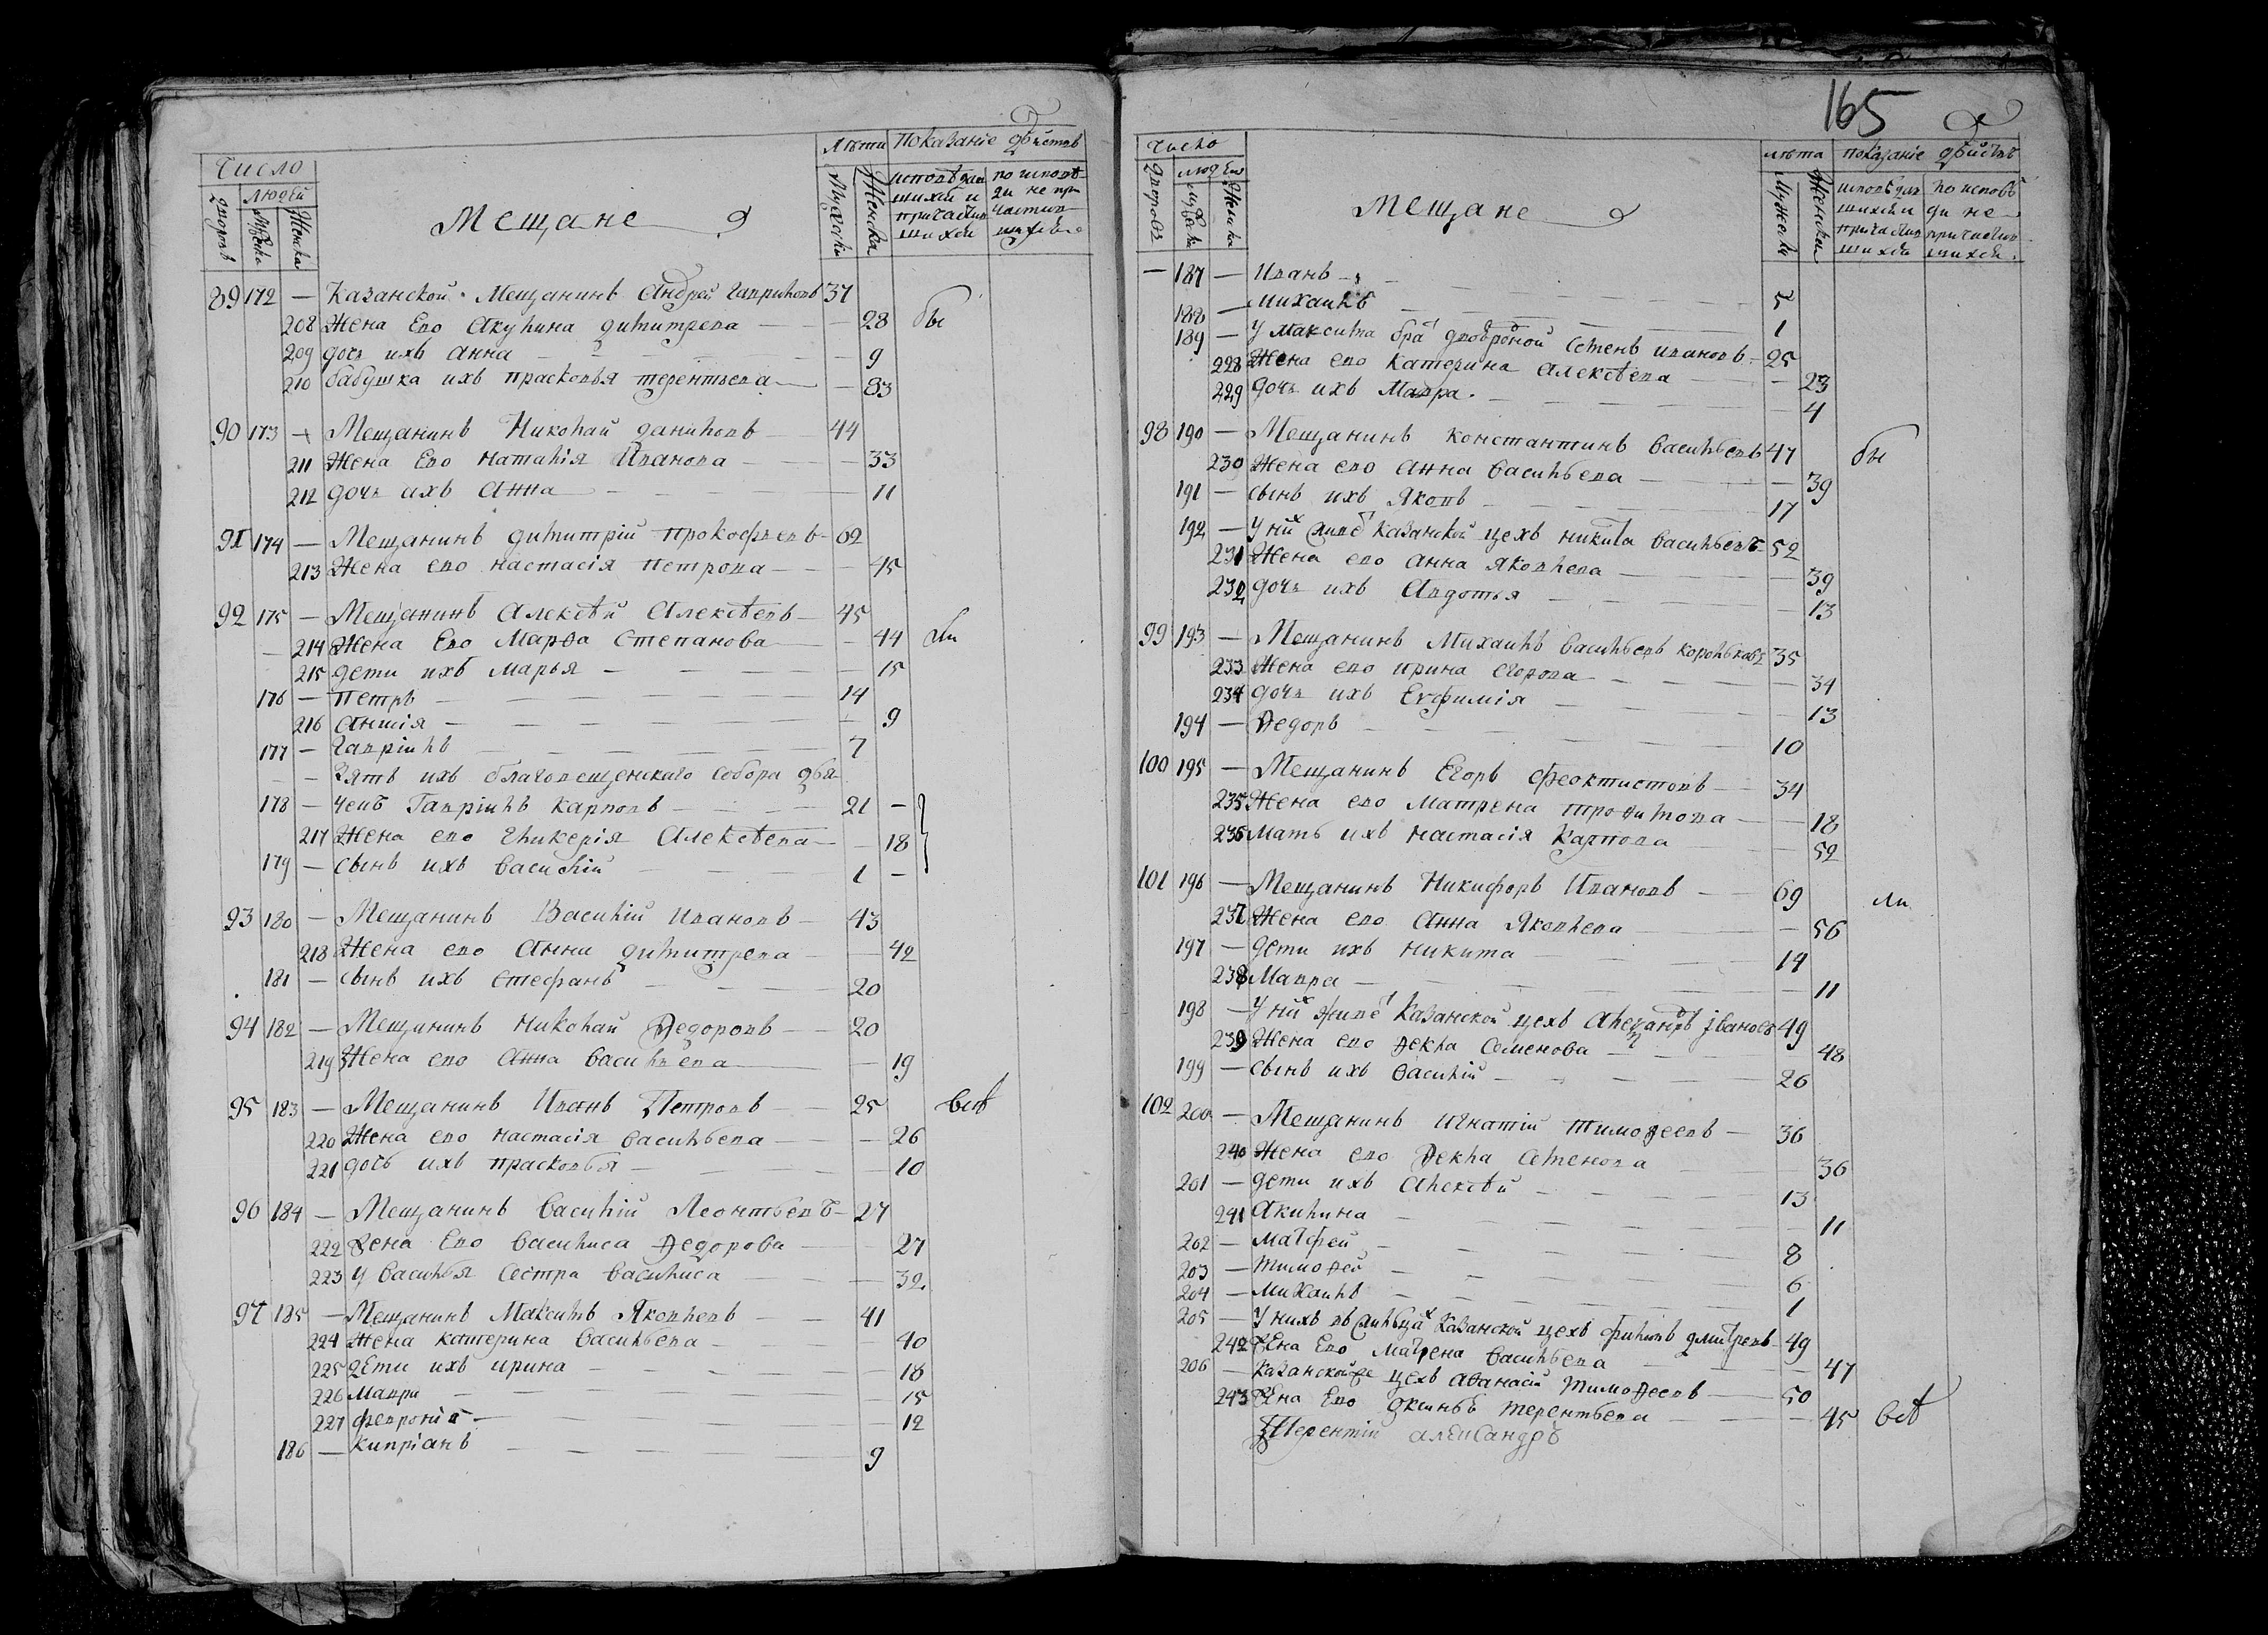 Число
Людей
дворовъ
Мужеска
Женска
Мещане
Лѣта
Мужеска
Женска
Показаніе двиствъ
исповѣдав
шихся и
причастив
шихся
по исповѣ
ди не при
частив
шихся
89 172 — Казанской Мещанинъ Андрей Гавриловъ 37
208 Жена Ево Акулина димитрева — 28 бы
209 дочь ихъ анна — 9
210 бабушка ихъ прасковья терентьева — 83
90 173 — Мещанинъ Николай даниловъ 44
211 Жена Ево наталія Иванова — 33
212 дочь ихъ Анна — 11
91 174 — Мещанинъ димитрій прокофьевъ 62
213 Жена ево настасія петрова — 45
92 175 — Мещанинъ Алексѣй Алексѣевъ 45
214 Жена Ево Марѳа Степанова — 44 ли
215 дети ихъ марья — 15
176 — петръ — 14
216 Анисія — 9
177 — Гавріилъ — 7
— Зять ихъ благовещенскаго собора дья
178 — чекъ Гавріилъ карповъ — 21
217 Жена ево Гликерія Алексѣева — 18
179 — сынъ ихъ василій — 1
93 180 — Мещанинъ Василій ивановъ 43
218 Жена ево Анна димитрева — 42
181 — сынъ ихъ стефанъ — 20
94 182 — Мещанинъ николай Ѳедоровъ — 20
219 Жена ево Анна васильева — 19
95 183 — Мещанинъ Иванъ Петровъ — 25 всѣ
220 Жена ево настасія васильева — 26
221 дочь ихъ прасковья — 10
96 184 — Мещанинъ василій Леонтьевъ 27
222 Жена Ево василиса Ѳедорова — 27
223 У василья сестра василиса — 32
97 185 — Мещанинъ Максимъ Яковлевъ — 41
224 Жена катерина васильева — 40
225 дети ихъ ирина — 18
226 Мавра — 15
227 феврониа — 12
186 — Кипріанъ — 9
165
число
людей
дворовъ
Мужеска
Женска
Мещане
лѣта
Мужеска
Женска
показаніе двиствъ
исповѣдав
шихся и
причастив
шихся
по исповѣ
ди не
причастив
шихся
— 187 — Иванъ — 5
188 — михаилъ — 1
189 — У максима бра двоброной Семенъ ивановъ 25
228 Жена ево катерина алексѣева — 23
229 дочь ихъ Мавра — 4
98 190 — Мещанинъ константинъ васильевъ 47 бы
230 Жена ево анна васильева — 39
191 — сынъ ихъ яковъ — 17
192 — У них живе казанской цехъ никита васильевъ 52
231 Жена ево анна яковлева — 39
232 дочь ихъ Авдотья — 13
99 193 — Мещанинъ михаилъ васильевъ корольковъ 35
233 Жена ево ирина егорова — 34
234 дочь ихъ Евфимія — 13
194 — Ѳедоръ — 10
100 195 — Мещанинъ Егоръ феоктистовъ 34
235 Жена ево матрена трофимова — 18
236 мать ихъ настасія карпова — 52
101 196 — Мещанинъ Никифоръ Ивановъ — 69 ли
237 Жена ево Анна Яковлева — 56
197 — дети ихъ никита — 14
238 Мавра — 11
198 — У них живе казанской цехъ Александръ Ивановъ 49
239 Жена ево Ѳекла Семенова — 48
199 — сынъ ихъ василій — 26
102 200 — Мещанинъ игнатій тимоѳеевъ — 36
240 Жена ево Ѳекла Семенова — 36
201 — дети ихъ Алексѣй — 13
241 Акилина — 11
202 — матфей — 8
203 — тимоѳей — 6
204 — михаилъ — 1
205 — У нихъ въ жильцах казанской цехъ филипъ дмитревъ 49
242 Жена Ево матрена васильева — 47
206 — казанской же цехъ аѳанасій тимоѳеевъ — 50
243 Жена Ево терентьева — 45 всѣ
Терентій александръ